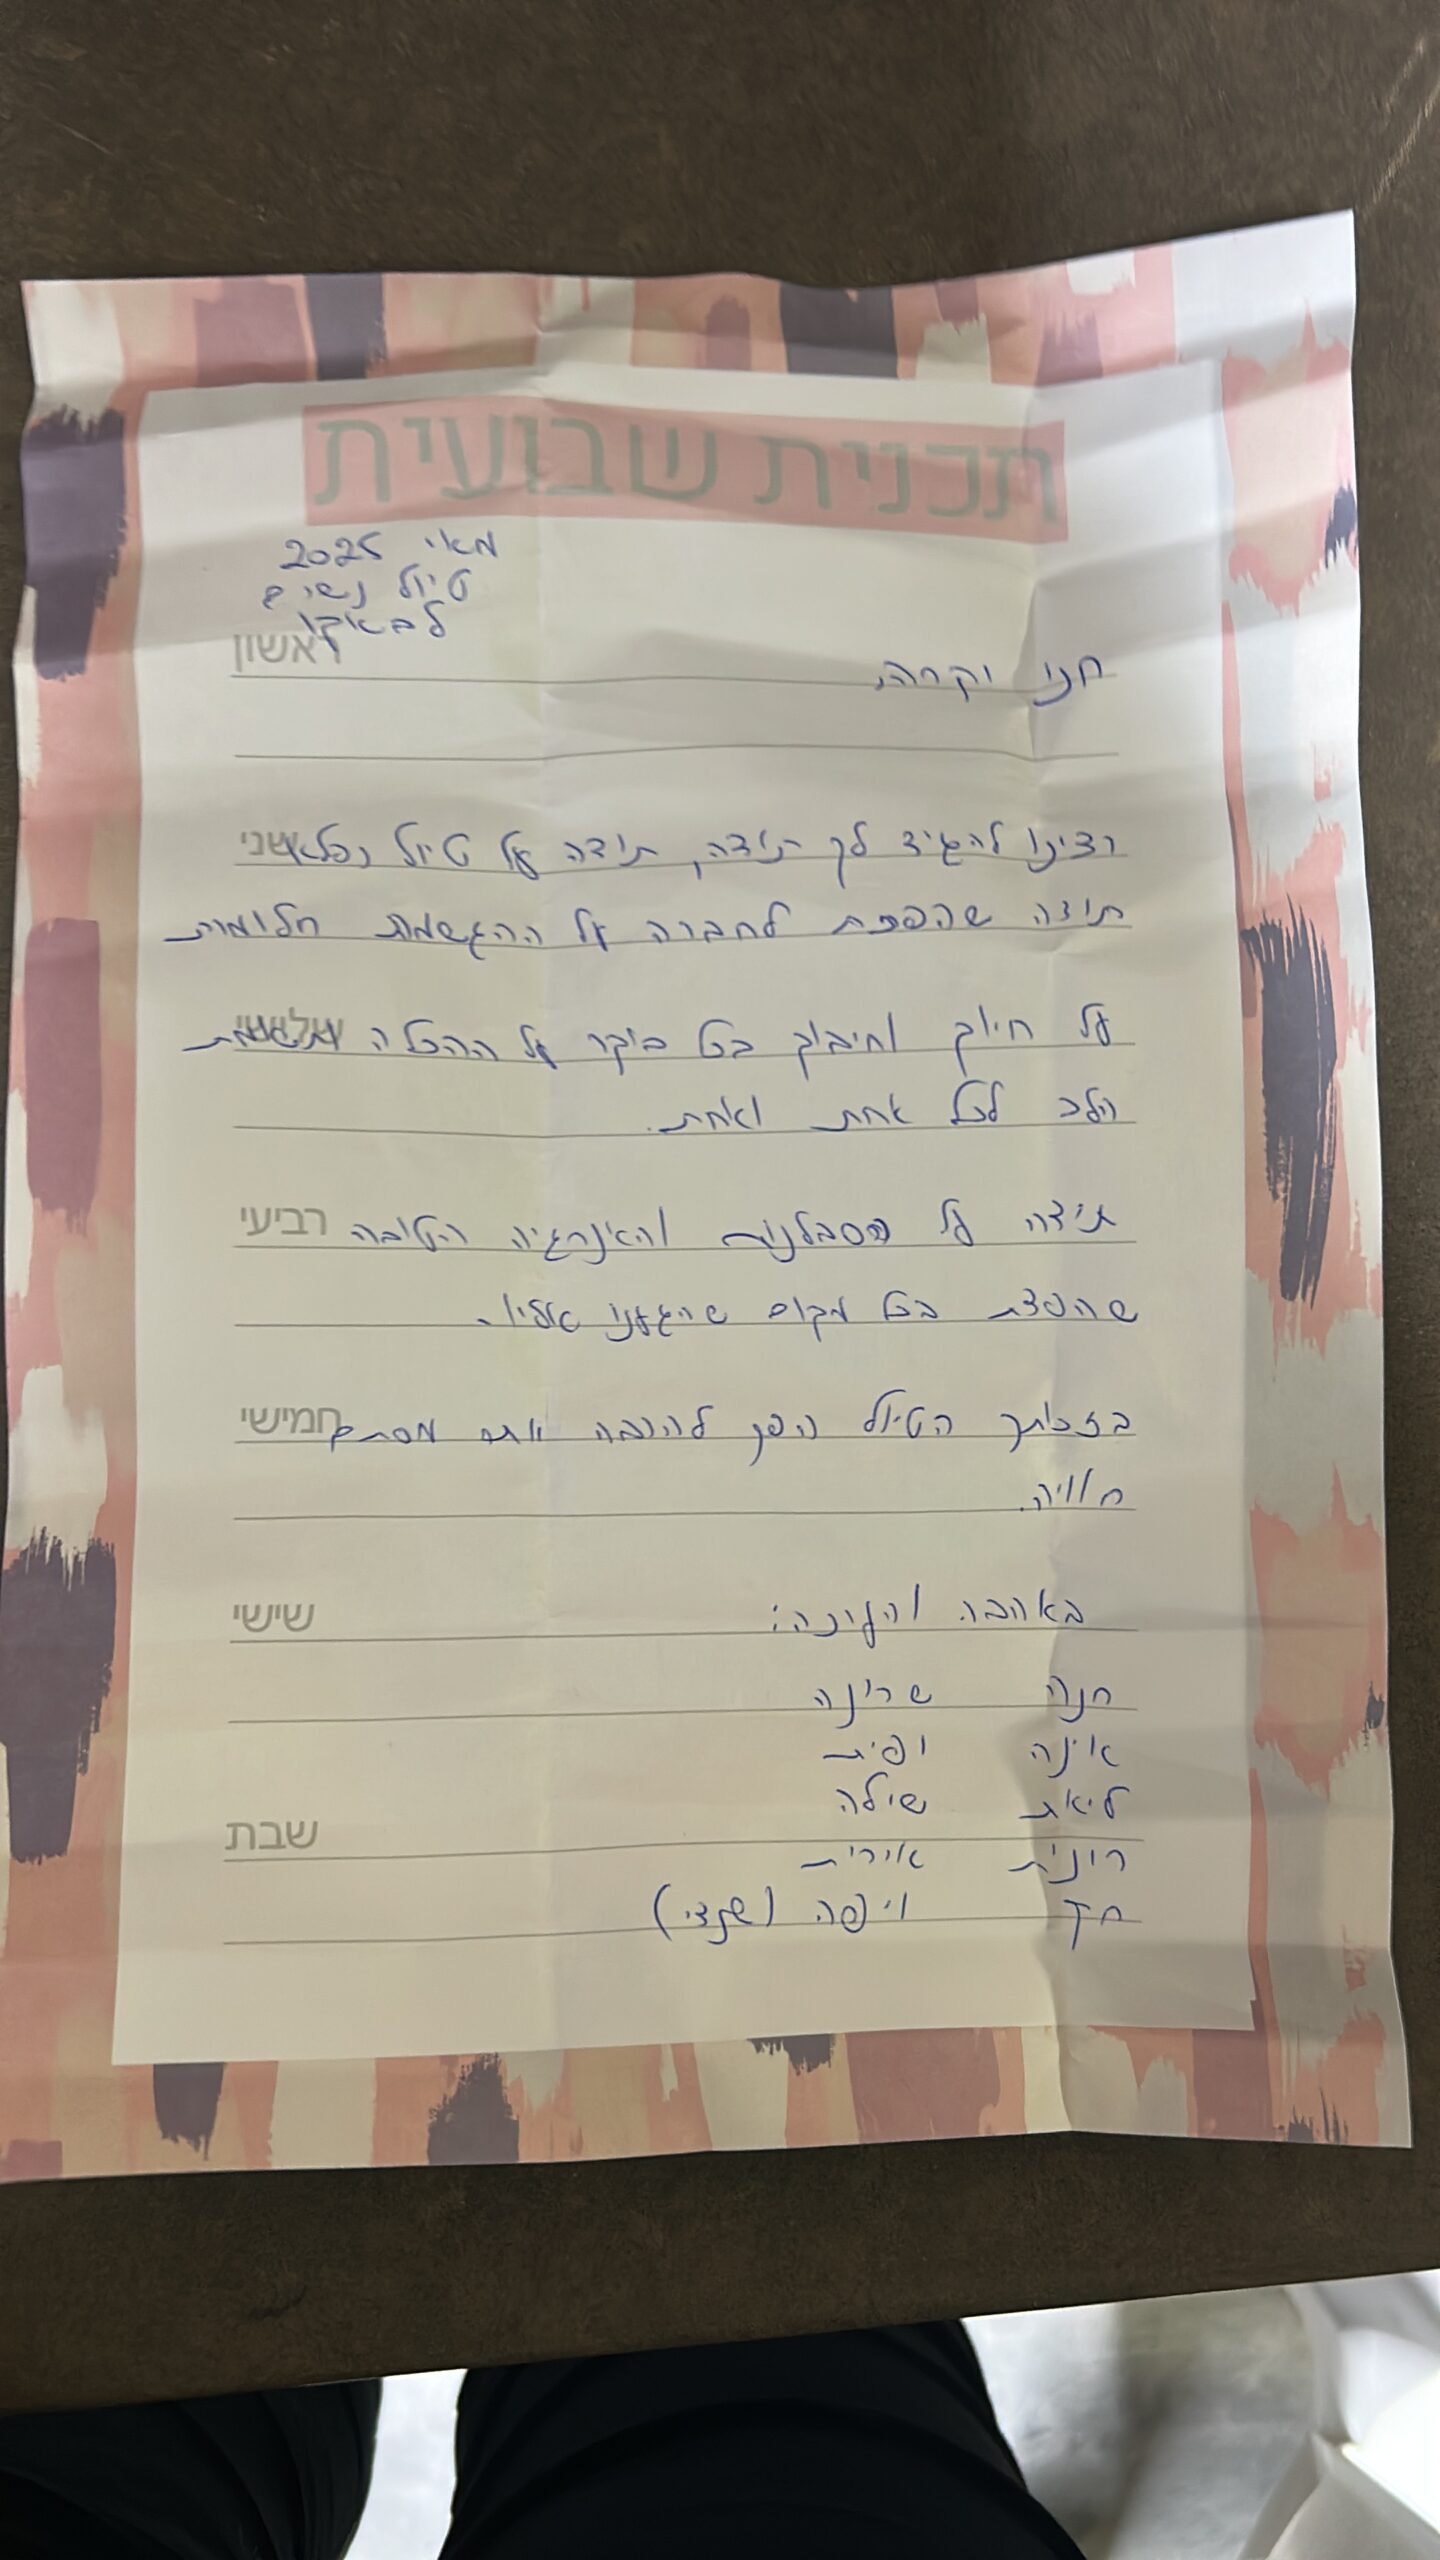 תכנית שבועית
מאי 2025
טיול נשים
לבאקו
ראשון
חני יקרה,
שני
רצינו להגיד לך תודה, תודה על טיול נפלא
תודה שהפכת לחברה על ההגשמת חלומות
שלישי
על חיוך וחיבוק בכל בוקר על ההכלה ותשומת
הלב לכל אחת ואחת.
רביעי
תודה על הסבלנות והאינרגיה הטובה
שהפצת בכל מקום שהגענו אליו.
חמישי
בזכותך הטיול הפך להרבה יותר מסתם
חוויה.
שישי
באהבה והערכה:
חנה שרינה
אינה יפית
ליאת שילה
שבת
רונית אירית
חן ויפה